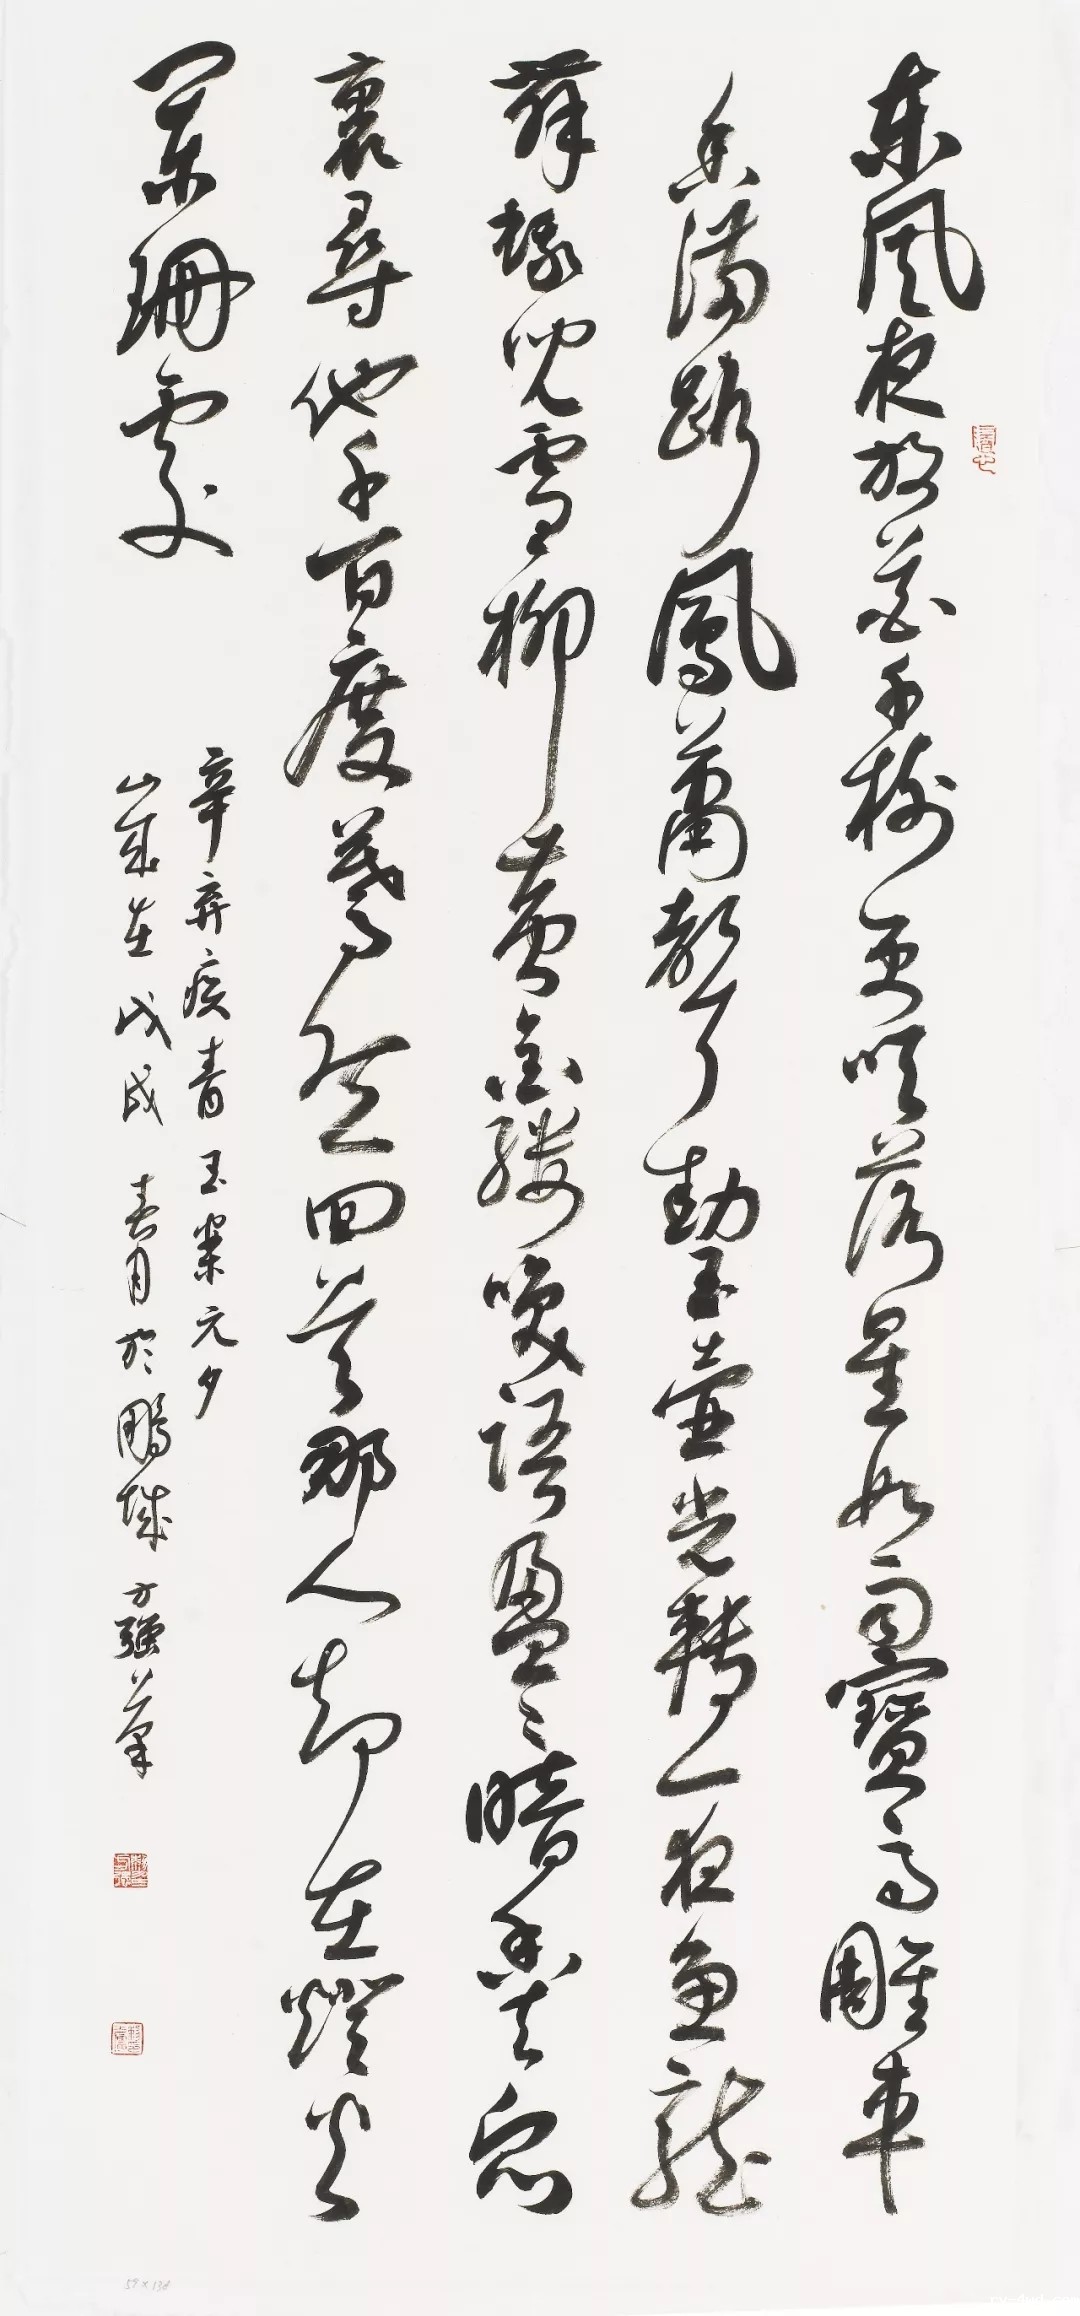 東風夜放花千樹更吹落星如雨寶馬雕車
香滿路鳳簫聲動玉壺光轉一夜魚龍
舞蛾兒雪柳黃金縷咲語盈々暗香去衆
裏尋他千百度驀然回首那人卻在燈火
闌珊處
辛弃疾青玉案元夕
歲在戊戌春月於鵬城方强筆